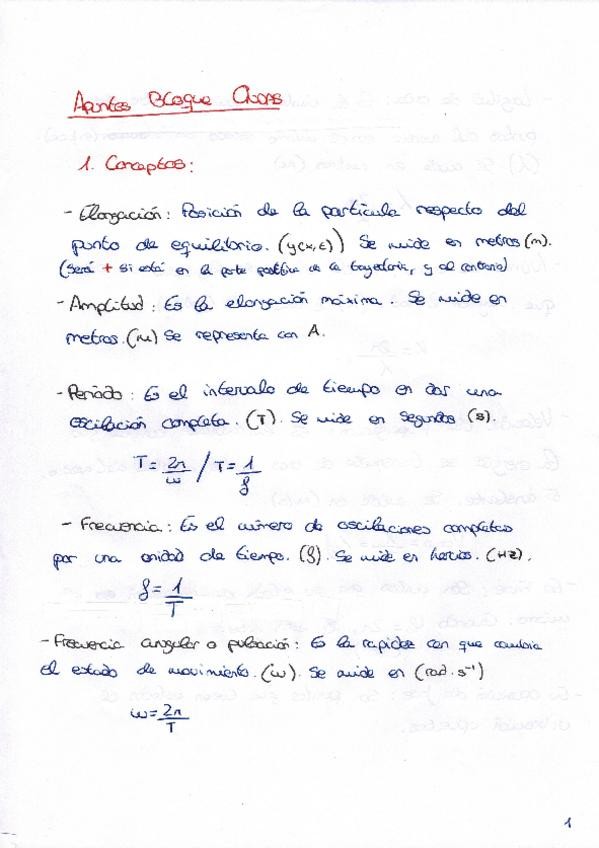 Apuntes Bloque Ondas
1. Conceptos:
- Elongación: Posición de la partícula respecto del
punto de equilibrio. (y(x,t)) Se mide en metros (m).
(Será + si está en la parte positiva de la trayectoria, y al contrario)
- Amplitud: Es la elongación máxima. Se mide en
metros. (m) Se representa con A.
- Periodo: Es el intervalo de tiempo en dar una
oscilación completa. (T). Se mide en segundos (s).
T = 2π/ω / T = 1/f
- Frecuencia: Es el número de oscilaciones completas
por una unidad de tiempo. (f). Se mide en hercios. (Hz).
f = 1/T
- Frecuencia angular o pulsación: Es la rapidez con que cambia
el estado de movimiento. (ω). Se mide en (rad·s⁻¹)
ω = 2π/T
1